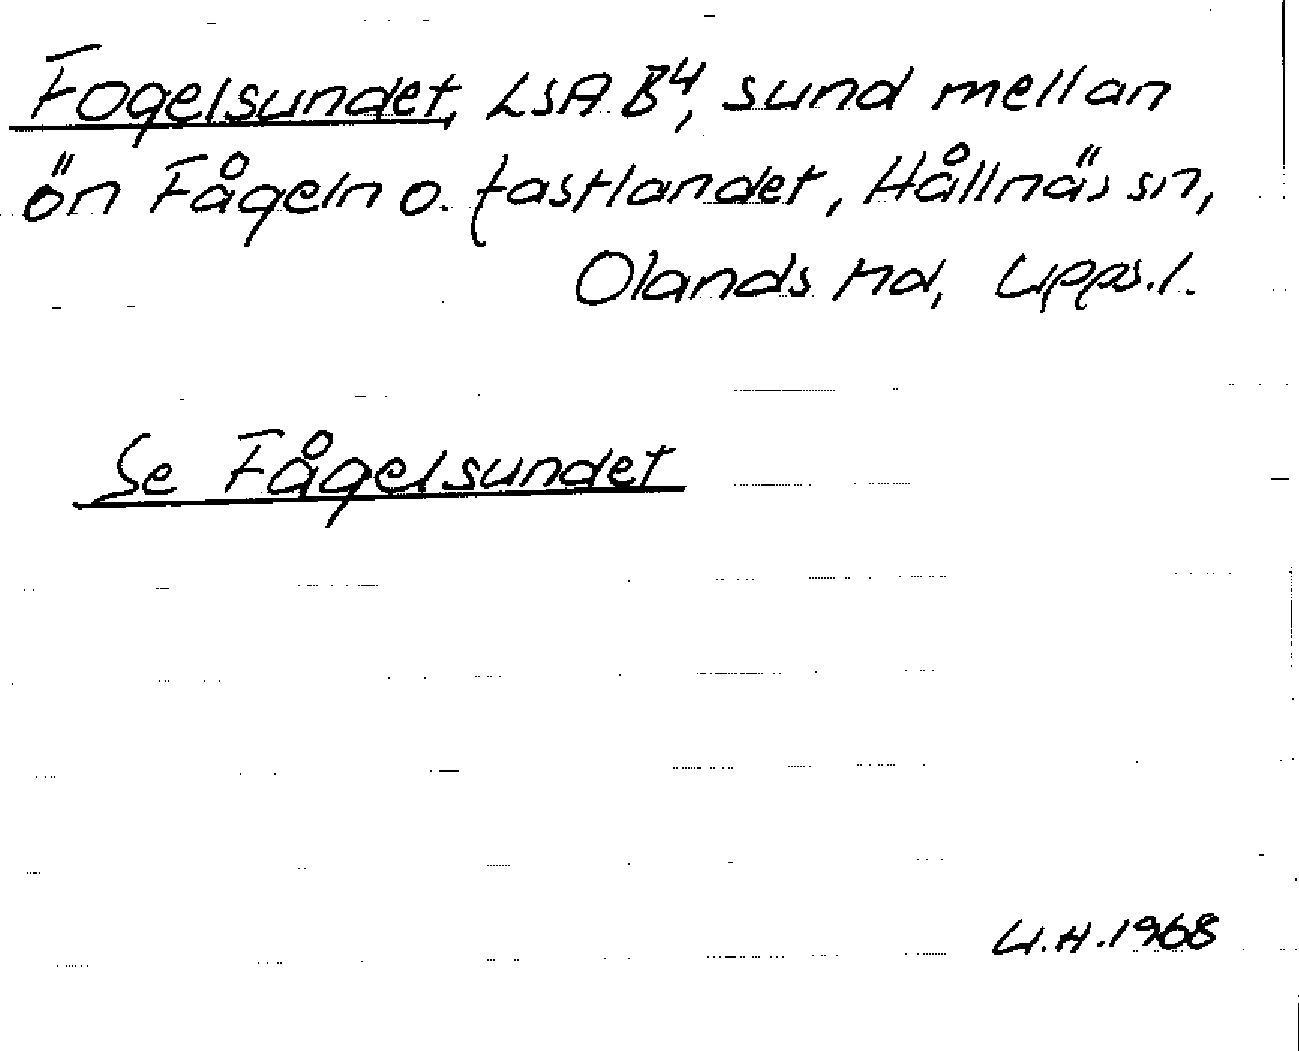 Fogelsundet, LSA B4, sund mellan
ön Fågeln o. fastlandet, Hållnäs sn,
Olands hd, Upps. l.
Se Fågelsundet
U.H. 1968